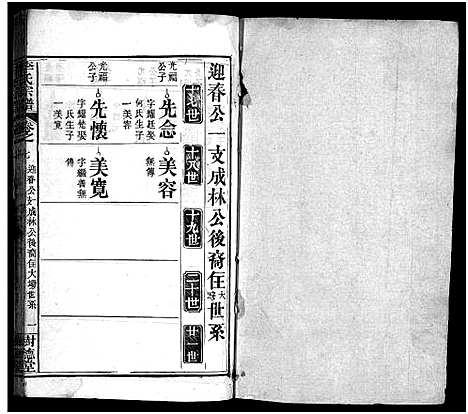 迎春公一支成林公後裔住大塆世系
十七世
十八世
十九世
二十世
廿一世
光福公子
先念
字耀廷娶
何氏生子
一美容
美容
無傳
光福公子
先懷
氏生子
一美寬
美寬
傳
李氏宗譜
卷之七
迎春公支成林公後裔住大塆世系
一
樹德堂